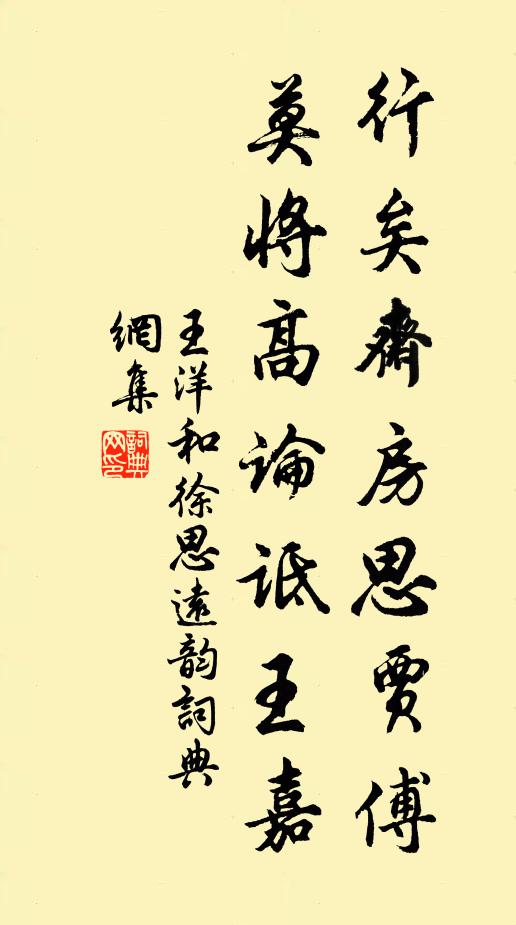 行矣齋房思賈傅
莫將高論詆王嘉
王洋和徐思遠韵詞典
網集
詞典网印